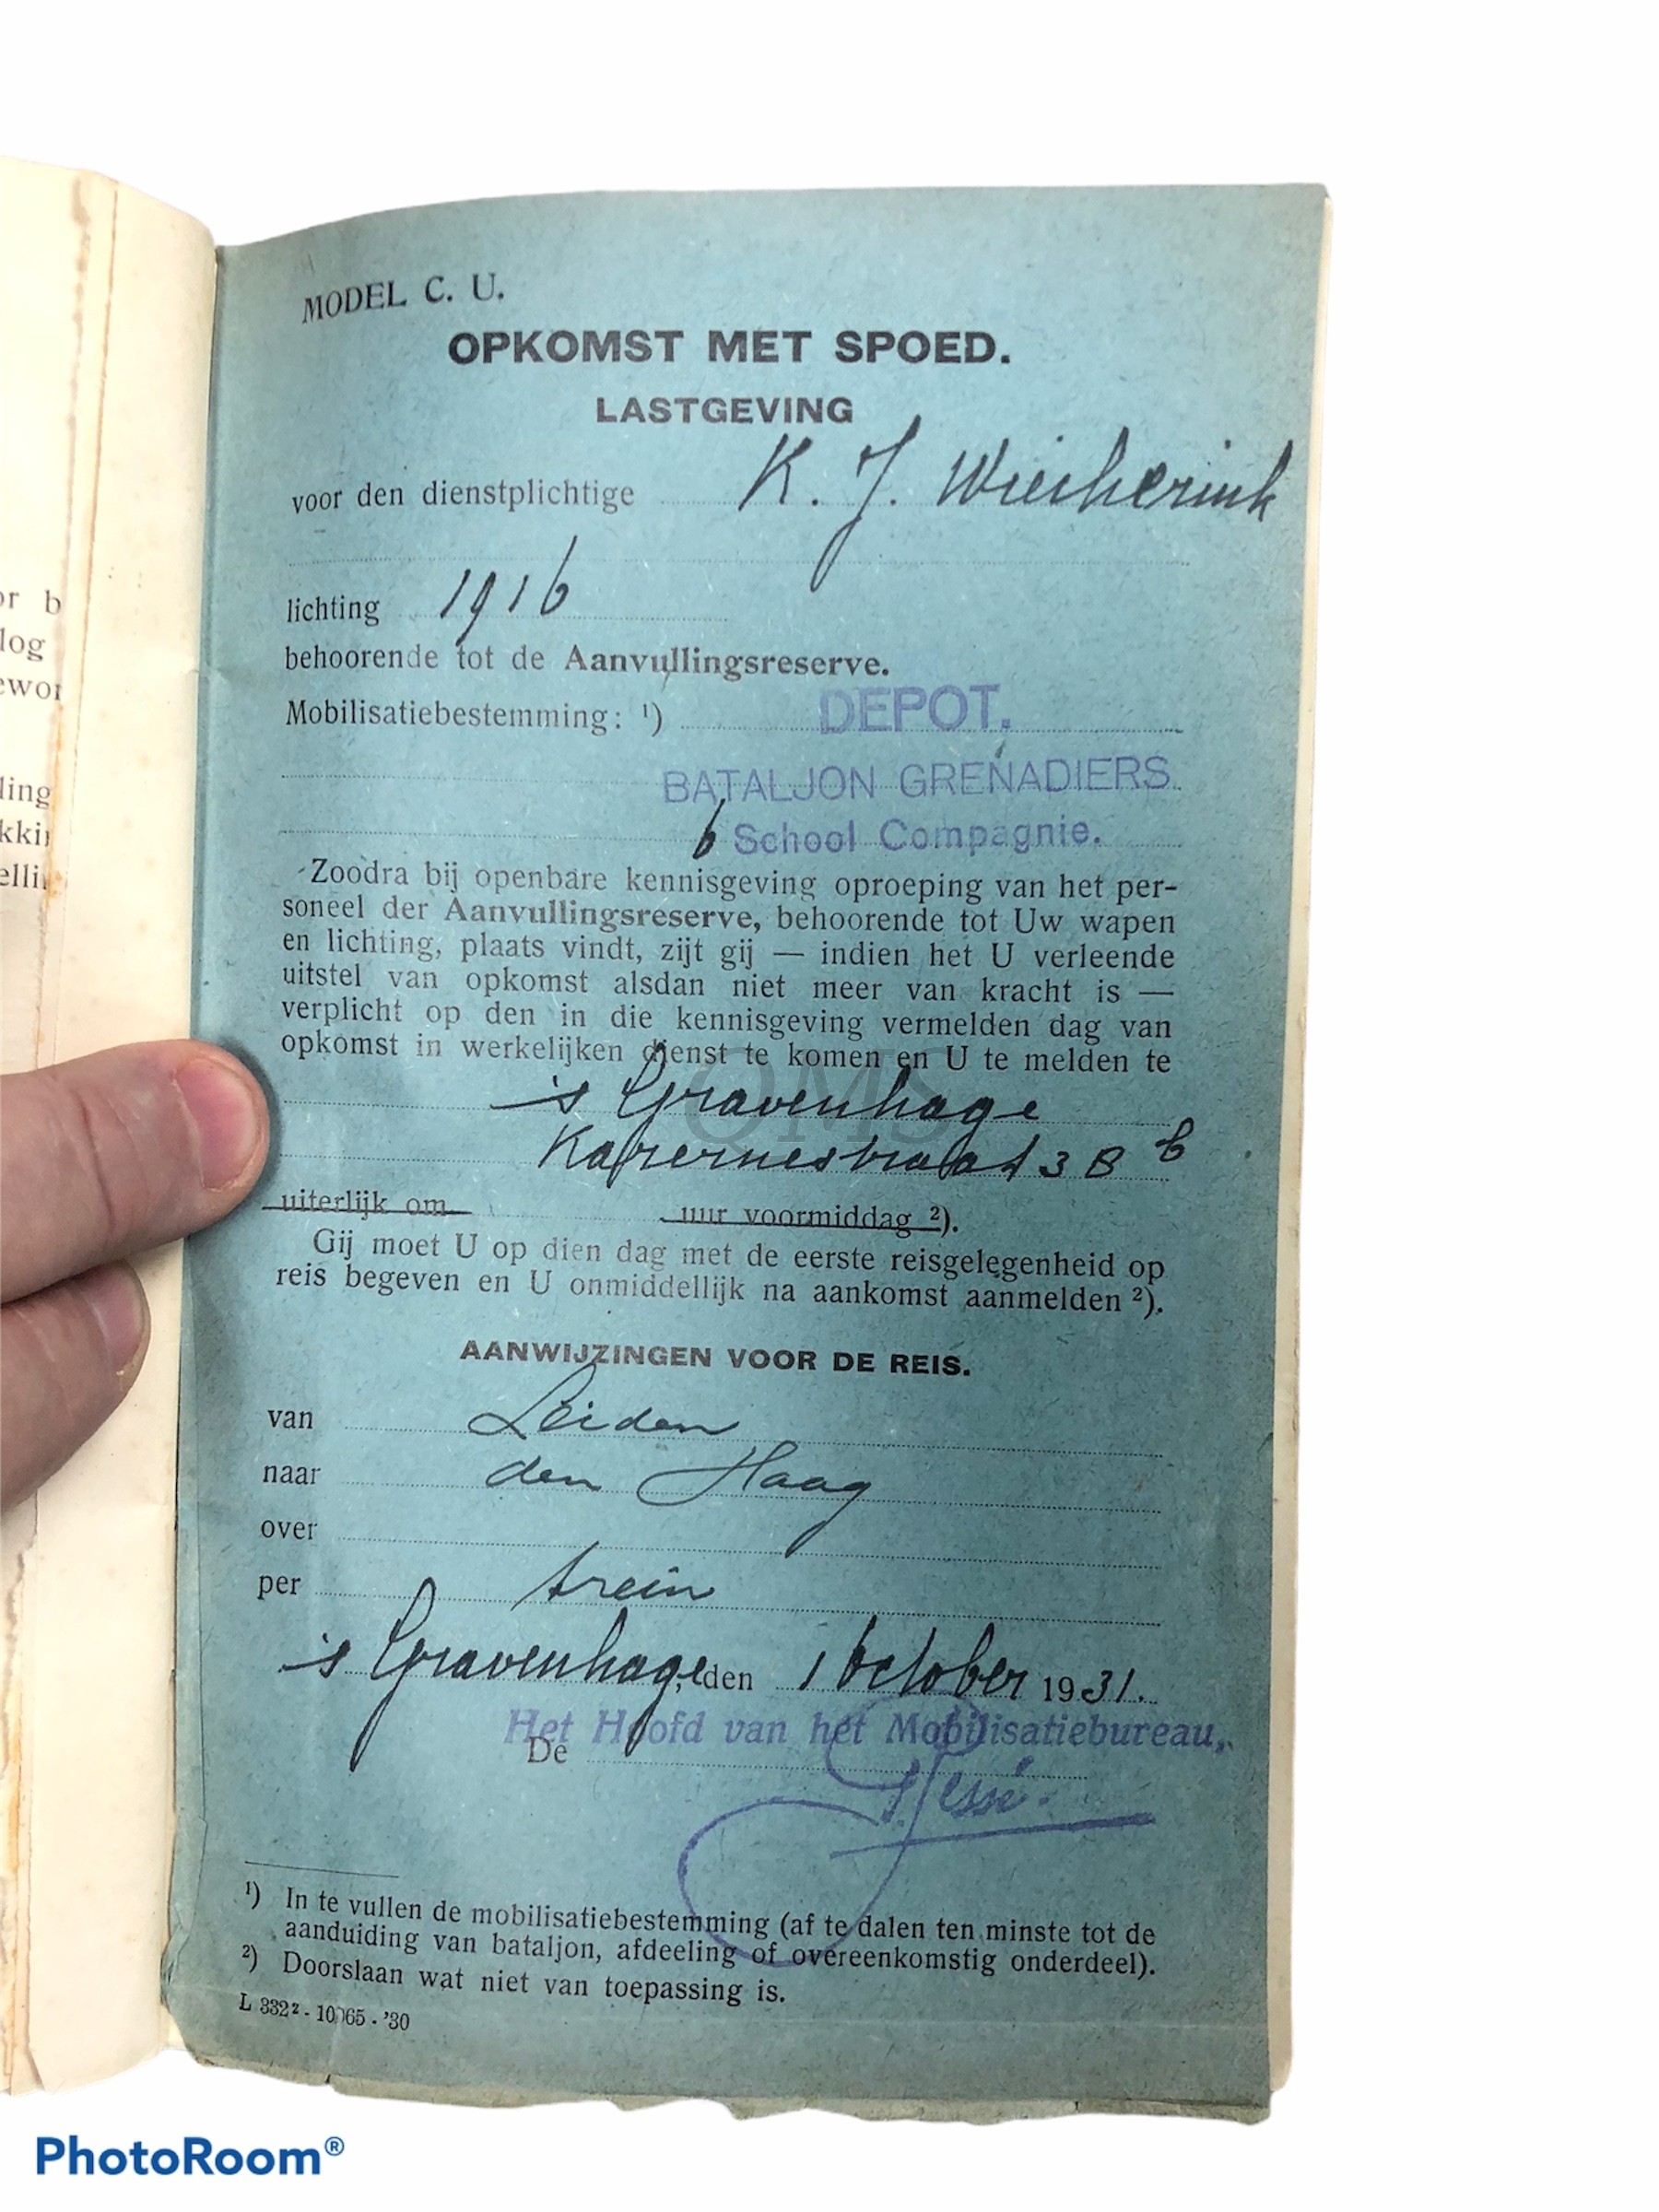 MODEL C. U.
OPKOMST MET SPOED.
LASTGEVING
voor den dienstplichtige K. J. Wiecherink
lichting 1916
behoorende tot de Aanvullingsreserve.
Mobilisatiebestemming: ¹) DEPOT.
BATALJON GRENADIERS.
6 School Compagnie.
Zoodra bij openbare kennisgeving oproeping van het per-
soneel der Aanvullingsreserve, behoorende tot Uw wapen
en lichting, plaats vindt, zijt gij — indien het U verleende
uitstel van opkomst alsdan niet meer van kracht is —
verplicht op den in die kennisgeving vermelden dag van
opkomst in werkelijken dienst te komen en U te melden te
OMS
's Gravenhage
Kazernestraat 3 B b
uiterlijk om uur voormiddag ²).
Gij moet U op dien dag met de eerste reisgelegenheid op
reis begeven en U onmiddellijk na aankomst aanmelden ²).
AANWIJZINGEN VOOR DE REIS.
van Leiden
naar den Haag
over
per trein
's Gravenhage, den 1 October 1931.
Het Hoofd van het Mobilisatiebureau,
De
¹) In te vullen de mobilisatiebestemming (af te dalen ten minste tot de
aanduiding van bataljon, afdeeling of overeenkomstig onderdeel).
²) Doorslaan wat niet van toepassing is.
L 332² - 10065 - '30
or b
log
ewor
ling
kkin
ellin
PhotoRoom®